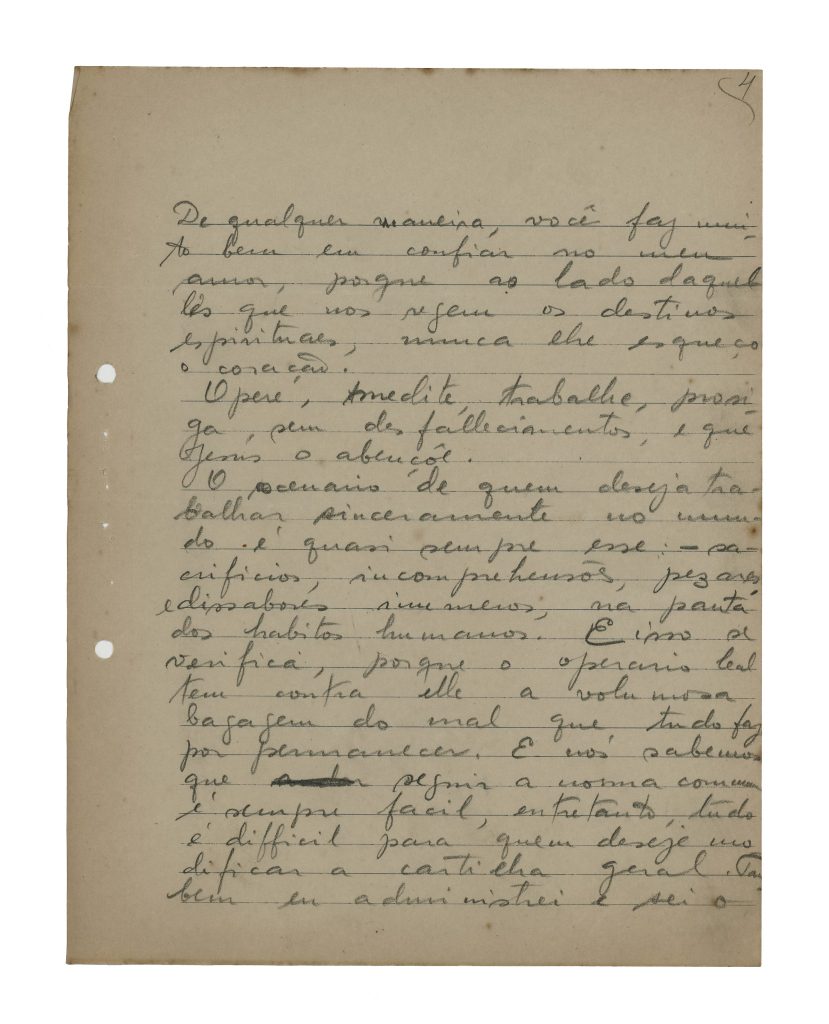 4
De qualquer maneira, você faz mui-
to bem em confiar no meu
amor, porque ao lado daquel
lês que nos regem os destinos
espirituaes, nunca lhe esqueço
o coração.
Opere, medite, trabalhe, prosi-
ga, sem desfallecimentos, e que
Jesus o abençôe.
O scenario de quem deseja tra-
balhar sinceramente no mun-
do é quasi sempre esse: - sa-
crificios, incomprehensões, pezares
e dissabores inumeros, na pauta
dos habitos humanos. E isso se
verifica, porque o operario leal
tem contra elle a volumosa
bagagem do mal que tudo faz
por permanecer. E nós sabemos
que seguir a norma commum
é sempre facil, entretanto, tudo
é difficil para quem deseje mo
dificar a cartilha geral. Tam
bem eu administrei e sei o